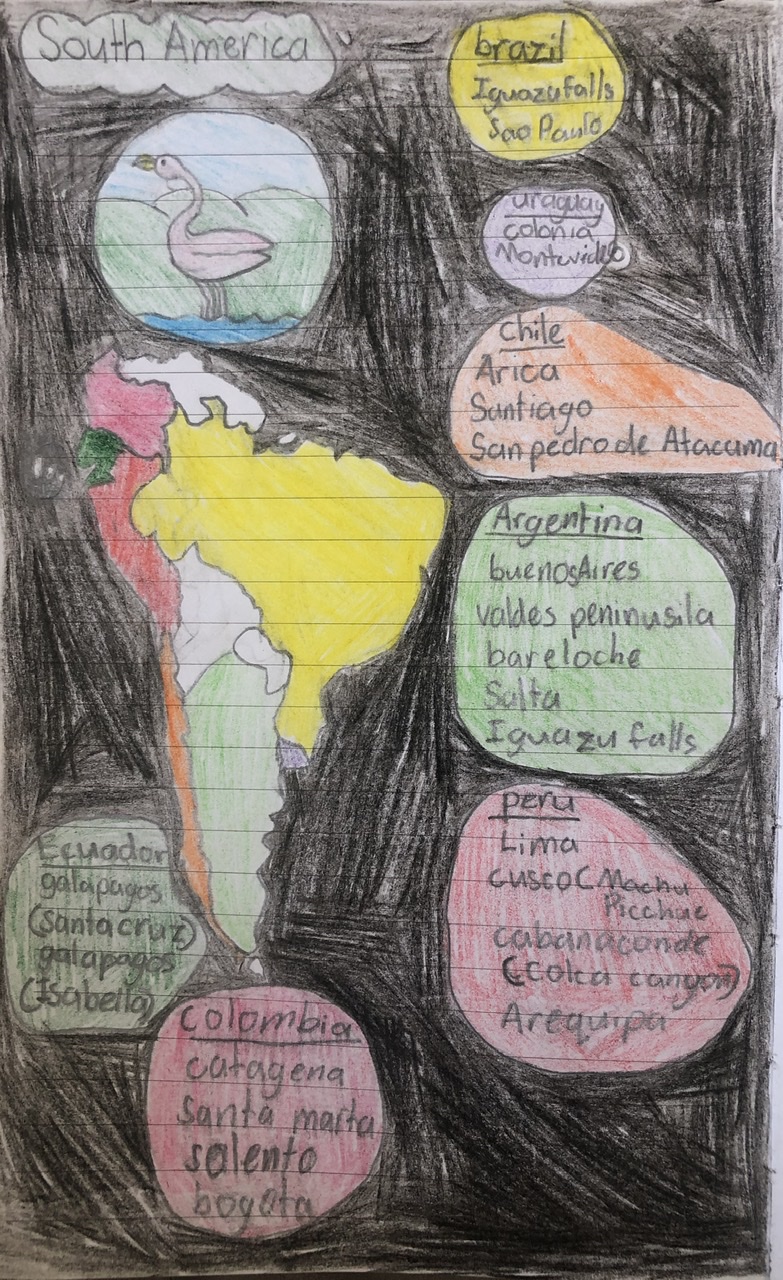 South America
brazil
Iguazu falls
Sao Paulo
uraguay
colonia
Montevideo
Chile
Arica
Santiago
San pedro de Atacama
Argentina
buenosAires
valdes peninusila
bareloche
Salta
Iguazu falls
peru
Lima
cusco (Machu
Picchue
cabanaconde
(colca canyon)
Arequipa
Ecuador
galapagos
(santa cruz)
galapagos
(Isabella)
Colombia
catagena
santa marta
salento
bogota